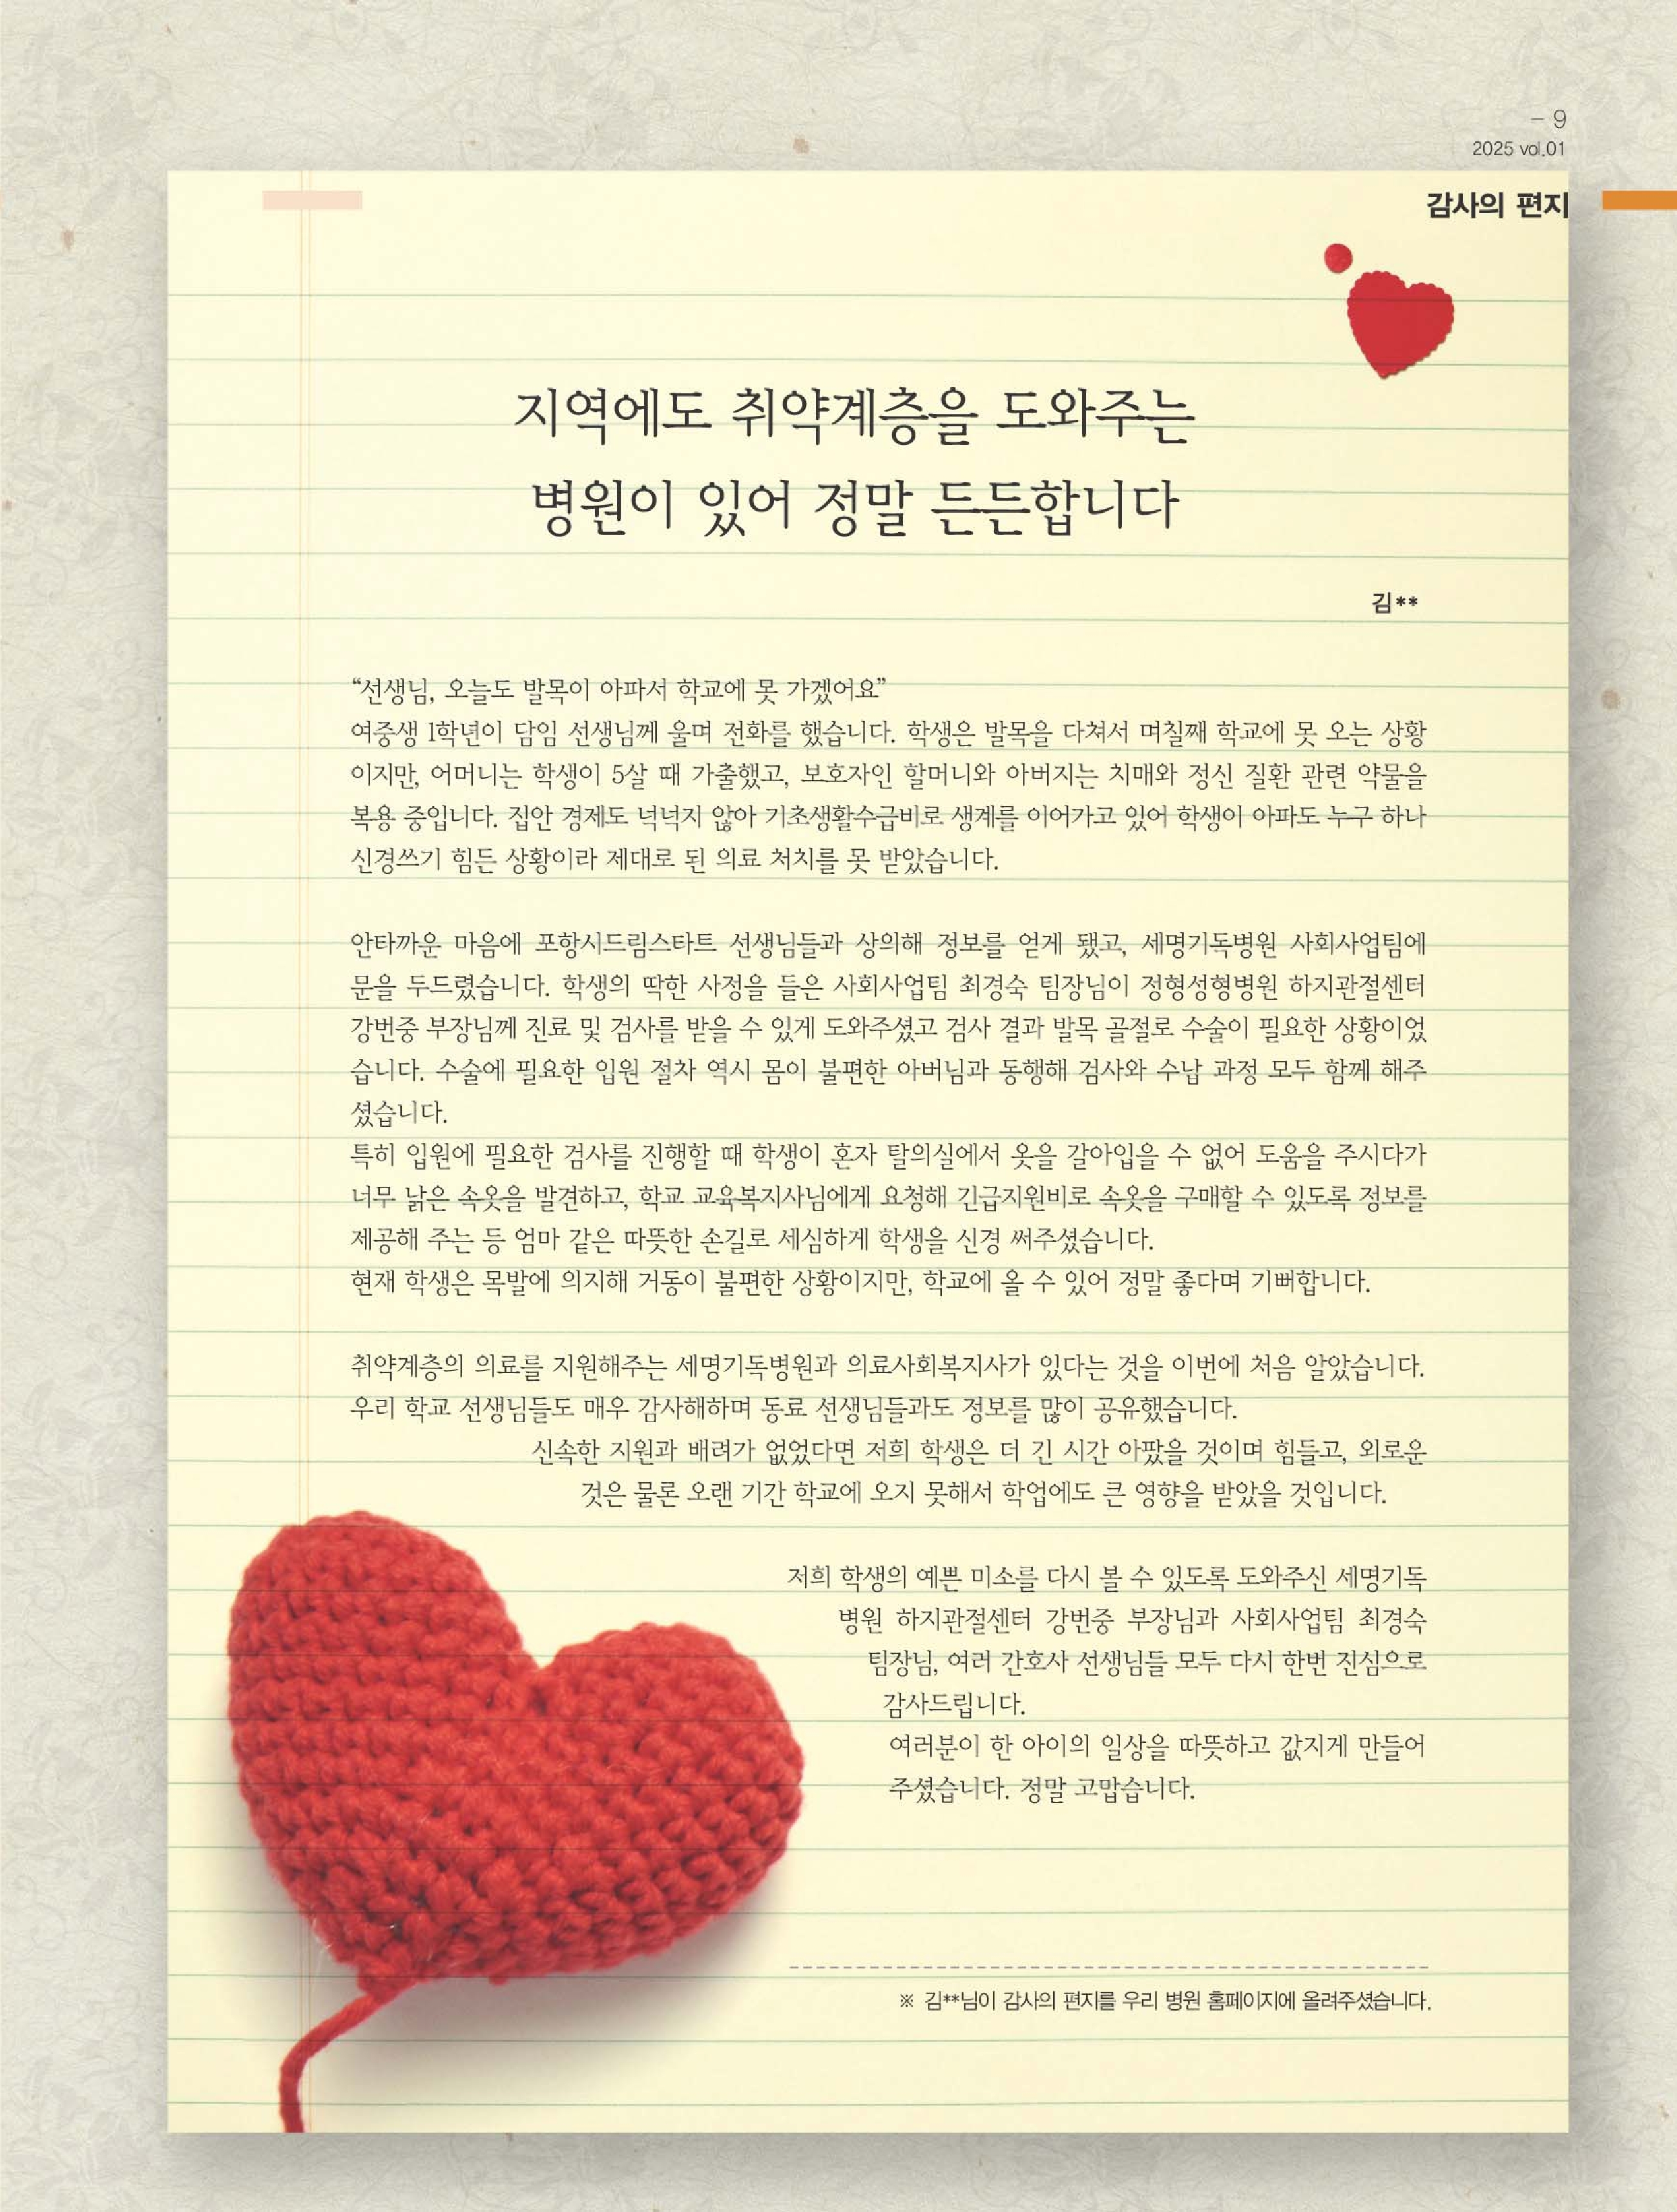 – 9
2025 vol.01
감사의 편지
지역에도 취약계층을 도와주는
병원이 있어 정말 든든합니다
김**
“선생님, 오늘도 발목이 아파서 학교에 못 가겠어요”
여중생 1학년이 담임 선생님께 울며 전화를 했습니다. 학생은 발목을 다쳐서 며칠째 학교에 못 오는 상황
이지만, 어머니는 학생이 5살 때 가출했고, 보호자인 할머니와 아버지는 치매와 정신 질환 관련 약물을
복용 중입니다. 집안 경제도 넉넉지 않아 기초생활수급비로 생계를 이어가고 있어 학생이 아파도 누구 하나
신경쓰기 힘든 상황이라 제대로 된 의료 처치를 못 받았습니다.
안타까운 마음에 포항시드림스타트 선생님들과 상의해 정보를 얻게 됐고, 세명기독병원 사회사업팀에
문을 두드렸습니다. 학생의 딱한 사정을 들은 사회사업팀 최경숙 팀장님이 정형성형병원 하지관절센터
강번중 부장님께 진료 및 검사를 받을 수 있게 도와주셨고 검사 결과 발목 골절로 수술이 필요한 상황이었
습니다. 수술에 필요한 입원 절차 역시 몸이 불편한 아버님과 동행해 검사와 수납 과정 모두 함께 해주
셨습니다.
특히 입원에 필요한 검사를 진행할 때 학생이 혼자 탈의실에서 옷을 갈아입을 수 없어 도움을 주시다가
너무 낡은 속옷을 발견하고, 학교 교육복지사님에게 요청해 긴급지원비로 속옷을 구매할 수 있도록 정보를
제공해 주는 등 엄마 같은 따뜻한 손길로 세심하게 학생을 신경 써주셨습니다.
현재 학생은 목발에 의지해 거동이 불편한 상황이지만, 학교에 올 수 있어 정말 좋다며 기뻐합니다.
취약계층의 의료를 지원해주는 세명기독병원과 의료사회복지사가 있다는 것을 이번에 처음 알았습니다.
우리 학교 선생님들도 매우 감사해하며 동료 선생님들과도 정보를 많이 공유했습니다.
신속한 지원과 배려가 없었다면 저희 학생은 더 긴 시간 아팠을 것이며 힘들고, 외로운
것은 물론 오랜 기간 학교에 오지 못해서 학업에도 큰 영향을 받았을 것입니다.
저희 학생의 예쁜 미소를 다시 볼 수 있도록 도와주신 세명기독
병원 하지관절센터 강번중 부장님과 사회사업팀 최경숙
팀장님, 여러 간호사 선생님들 모두 다시 한번 진심으로
감사드립니다.
여러분이 한 아이의 일상을 따뜻하고 값지게 만들어
주셨습니다. 정말 고맙습니다.
※ 김**님이 감사의 편지를 우리 병원 홈페이지에 올려주셨습니다.